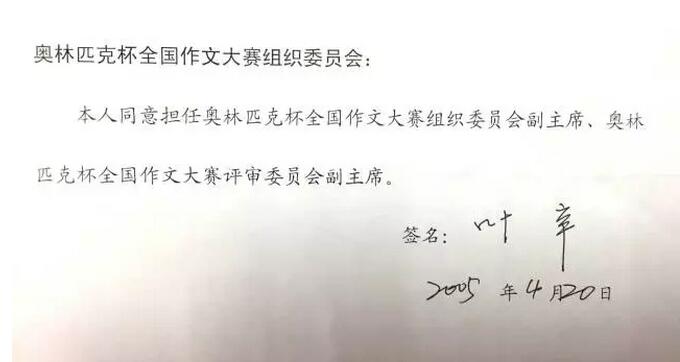 奥林匹克杯全国作文大赛组织委员会：
本人同意担任奥林匹克杯全国作文大赛组织委员会副主席、奥林
匹克杯全国作文大赛评审委员会副主席。
签名：叶辛
2005年4月20日